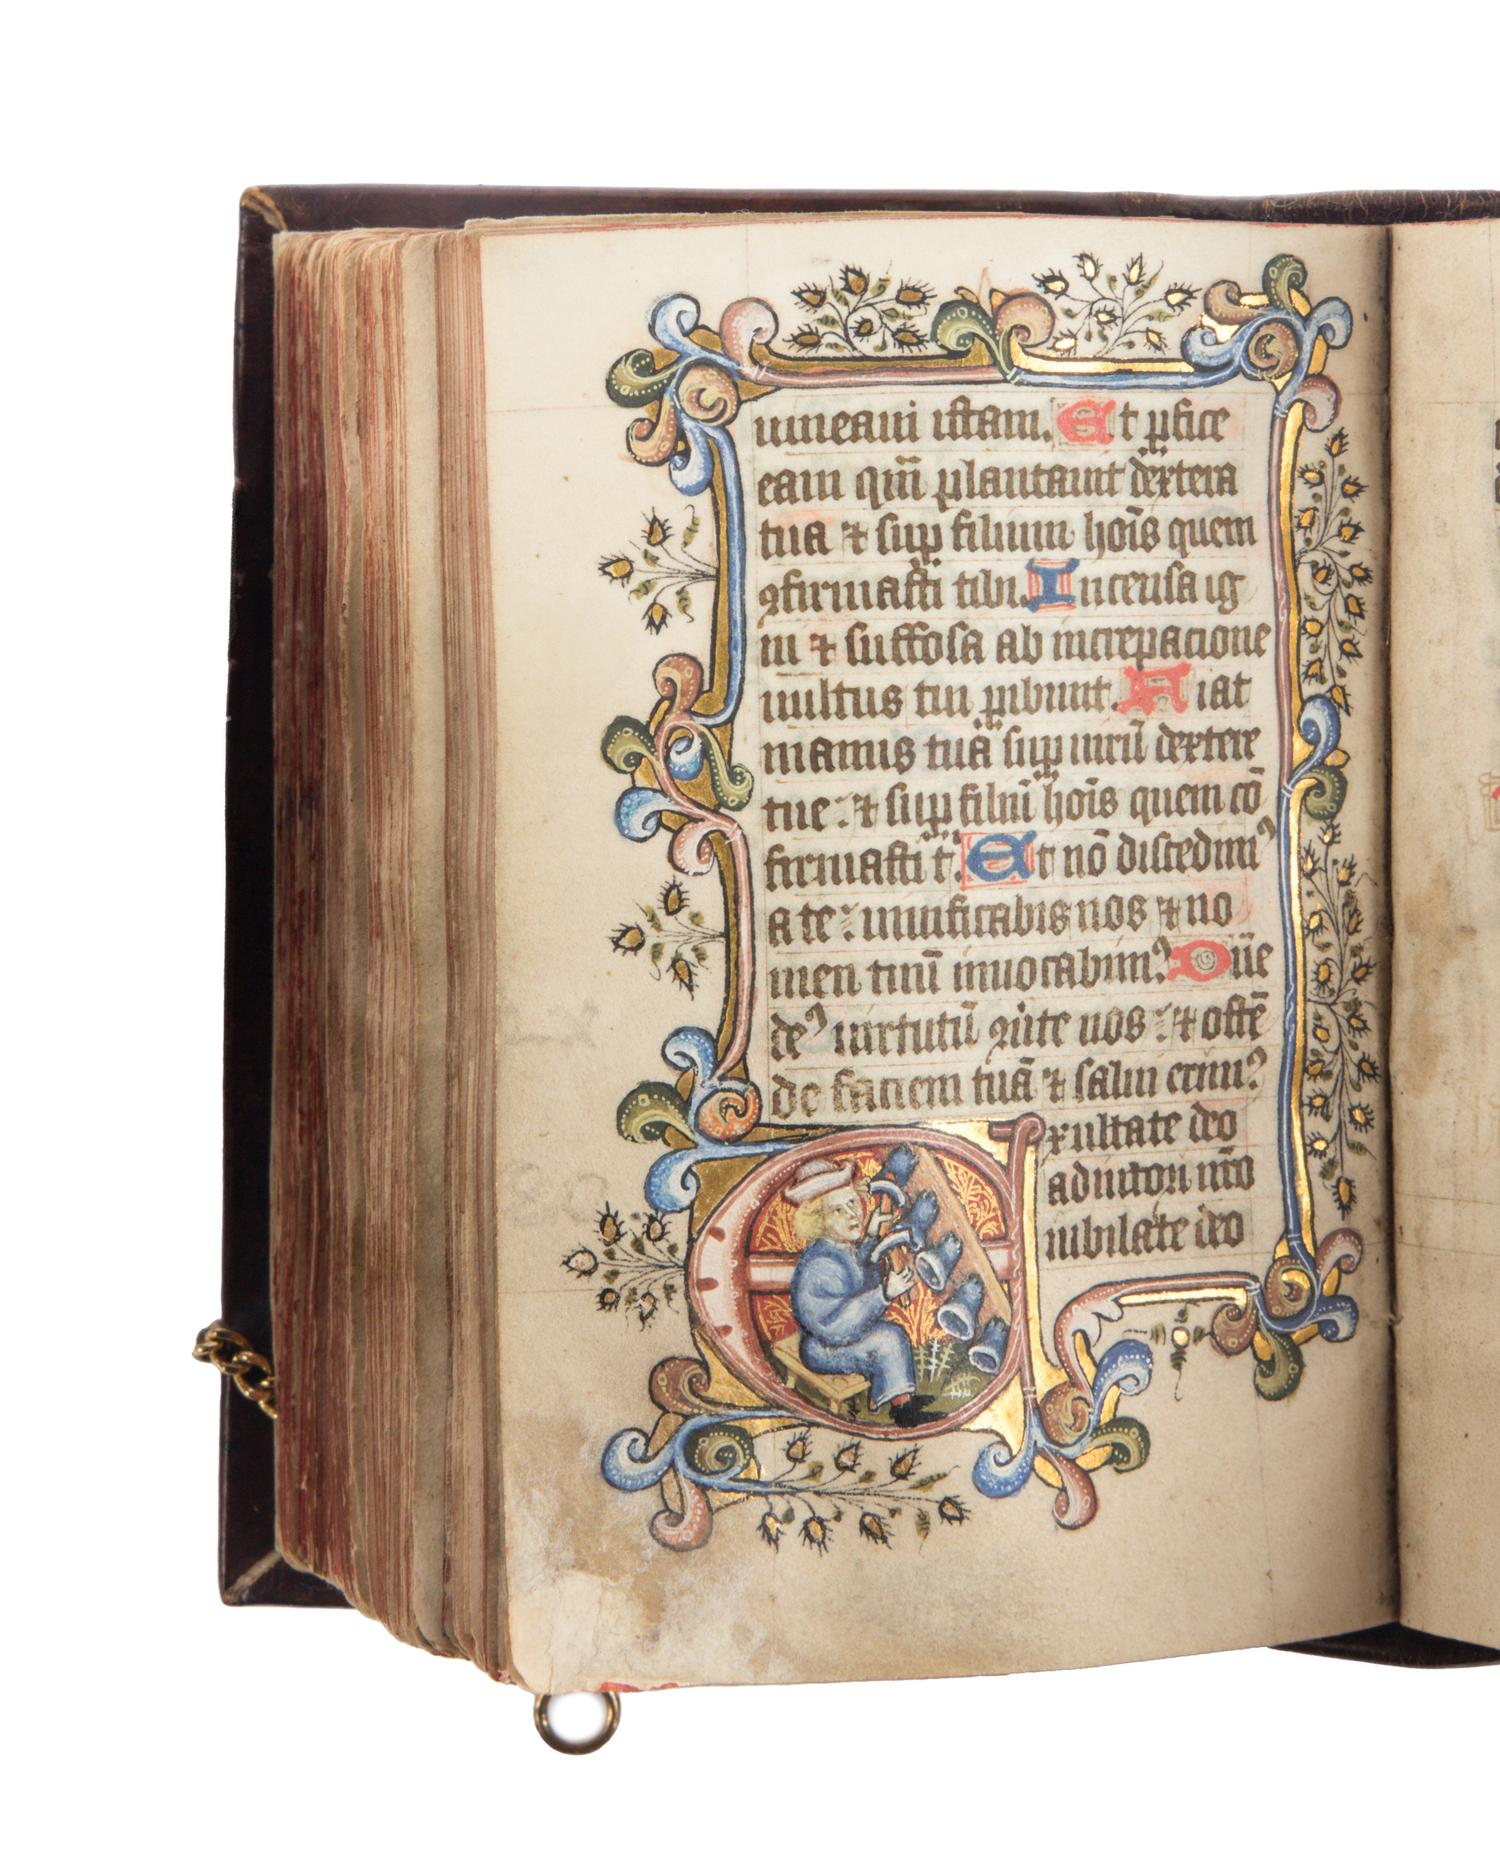 uineam istam. Et ꝑfice
eam qm̄ plantauit dextera
tua ⁊ suꝑ filium hoı̄s quem
ꝯfirmasti tibi. Incensa ig
ni ⁊ suffosa ab increpacione
uultus tui ꝑibunt. Fiat
manus tua suꝑ uirū dextere
tue : ⁊ suꝑ filiū hoı̄s quem cō
firmasti t̄. Et nō discedimꝰ
a te : uiuificabis nos ⁊ no
men tuū inuocabimꝰ Dn̄e
deꝰ uirtutū ꝯũte nos : ⁊ ostē
de faciem tuā ⁊ salui erimꝰ
Exultate deo
adiutori nr̄o
iubilate deo